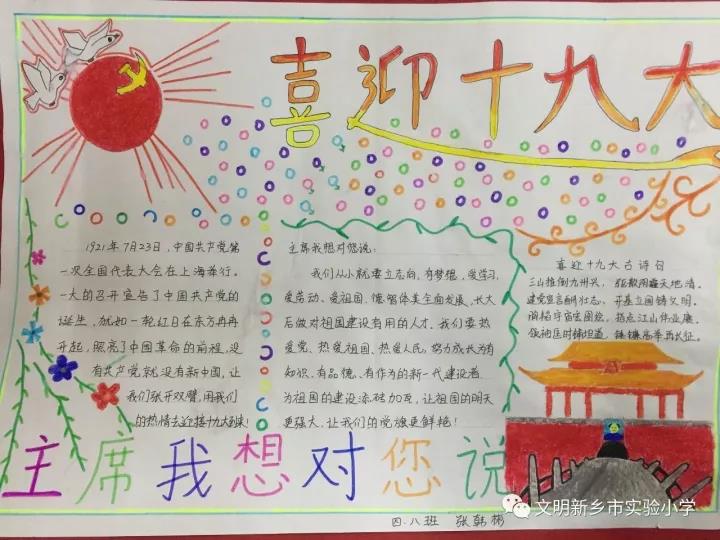 喜迎十九大
1921年7月23日,中国共产党第
一次全国代表大会在上海举行。
一大的召开宣告了中国共产党的
诞生,就如一轮红日在东方冉冉
升起,照亮了中国革命的前程,没
有共产党就没有新中国,让
我们张开双臂,用我们
的热情去迎接十九大到来!
主席我想对您说:
我们从小就要立志向,有梦想,爱学习,
爱劳动、爱祖国,德智体美全面发展,长大
后做对祖国建设有用的人才。我们要热
爱党、热爱祖国、热爱人民,努力成长为有
知识、有品德、有作为的新一代建设者
为祖国的建设添砖加瓦,让祖国的明天
更强大,让我们的党旗更鲜艳!
喜迎十九大古诗句
三山推倒九州兴,驱散阴霾天地清。
建党宣言酬壮志,开基立国铸文明。
宇宙图绘,指点江山伟业展。
领袖匡时梯坦道,锤镰高举再长征。
主席我想对您说
四.八班 张韩彬
文明新乡市实验小学